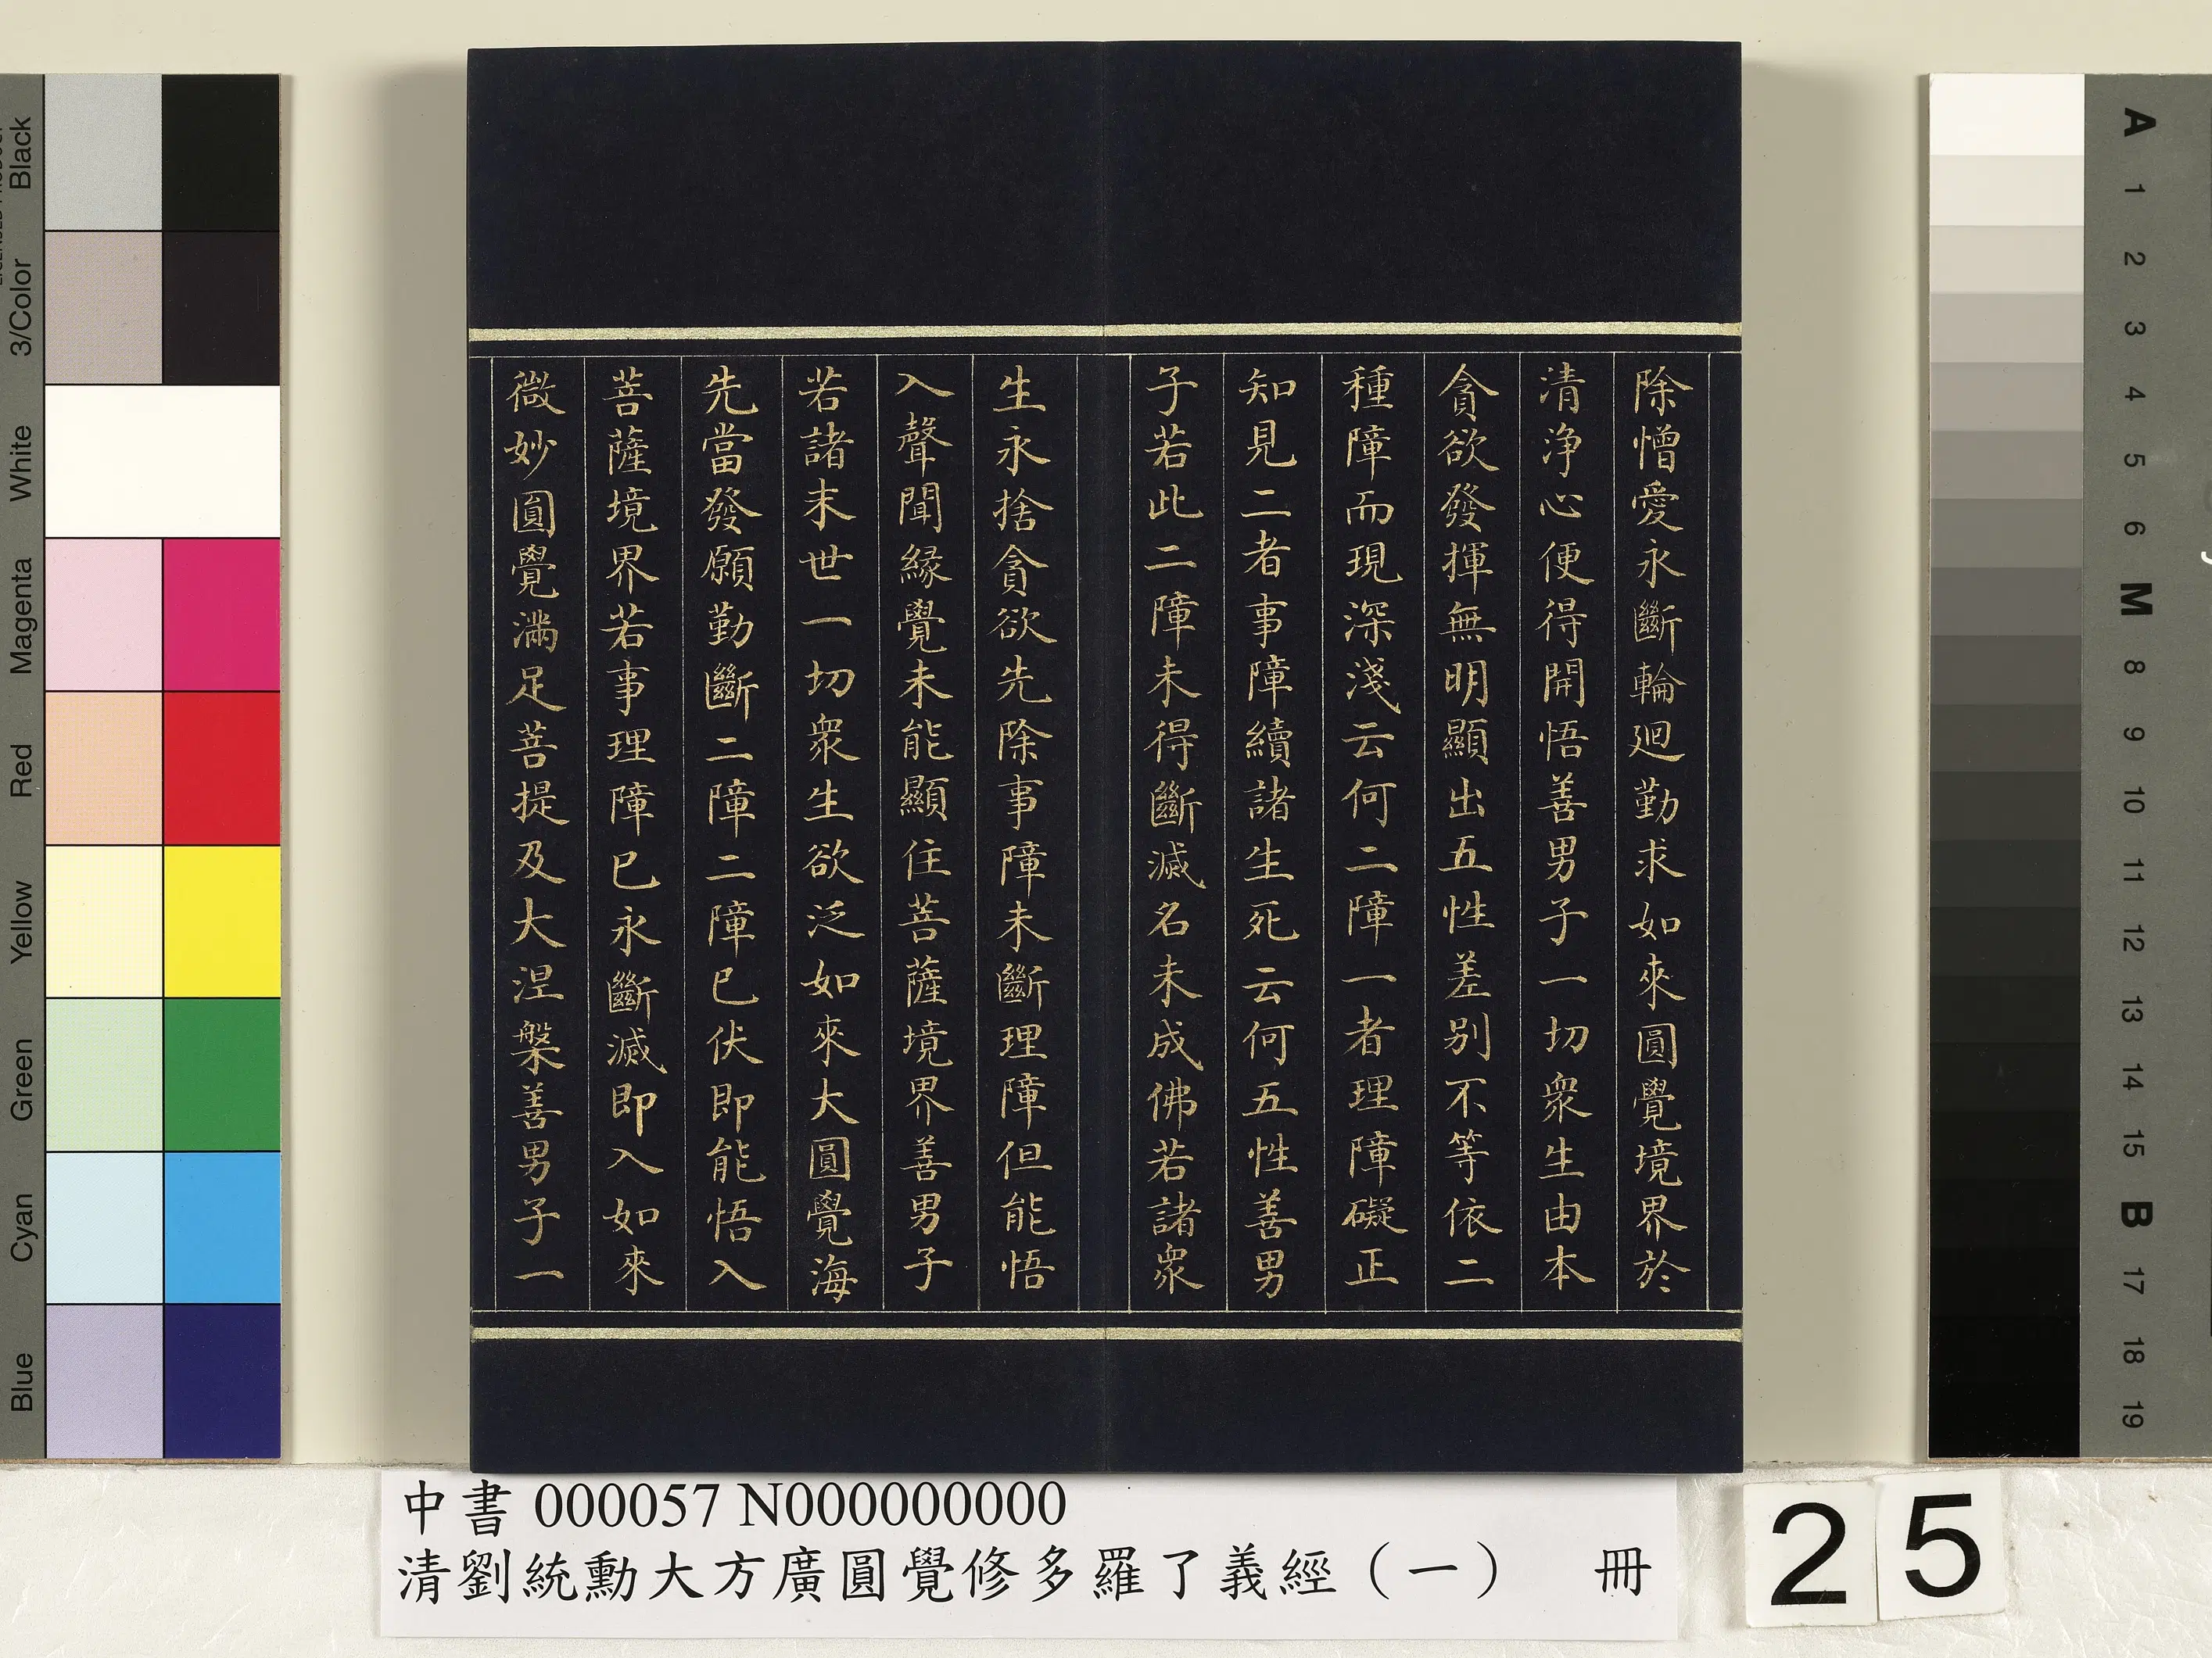 除憎愛永斷輪迴勤求如來圓覺境界於
清淨心便得開悟善男子一切衆生由本
貪欲發揮無明顯出五性差别不等依二
種障而現深淺云何二障一者理障礙正
知見二者事障續諸生死云何五性善男
子若此二障未得斷滅名未成佛若諸衆
生永捨貪欲先除事障未斷理障但能悟
入聲聞緣覺未能顯住菩薩境界善男子
若諸末世一切衆生欲泛如來大圓覺海
先當發願勤斷二障二障已伏即能悟入
菩薩境界若事理障已永斷滅即入如來
微妙圓覺滿足菩提及大涅槃善男子一
中書 000057 N000000000
清劉統勳大方廣圓覺修多羅了義經（一） 冊
25
Black
3/Color
White
Magenta
Red
Yellow
Green
Cyan
Blue
A
1
2
3
4
5
6
M
8
9
10
11
12
13
14
15
B
17
18
19